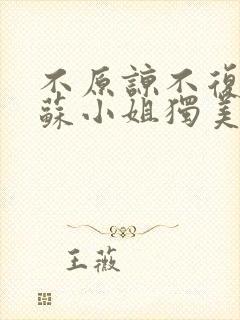 不原諒不復
蘇小姐獨美
王薇